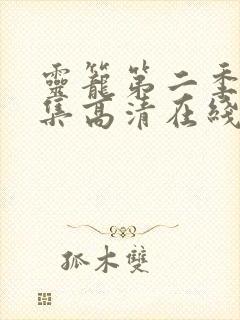 靈籠第二季
集高清在綫
孤木雙